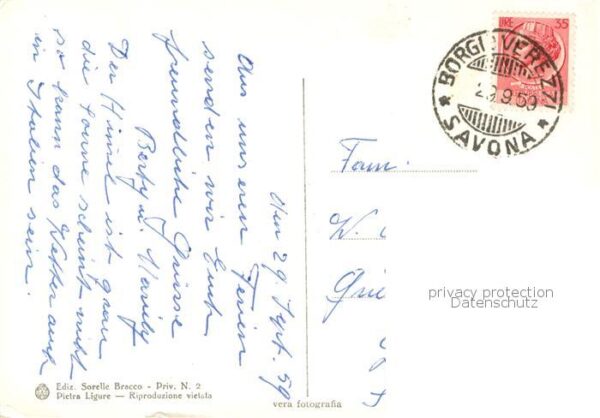 Den 29. Sept. 59
Aus unseren Ferien
senden wir Euch
freundliche Grüsse
Berty u.
Der Himmel ist grau
die Sonne scheint nicht
so kann das Wetter auch
in Italien sein.
LIRE 35
BORGIO VEREZZI
29.9.59
SAVONA
Fam.
W.
Grie
privacy protection
Datenschutz
Ediz. Sorelle Bracco - Priv. N. 2
Pietra Ligure — Riproduzione vietata
vera fotografia